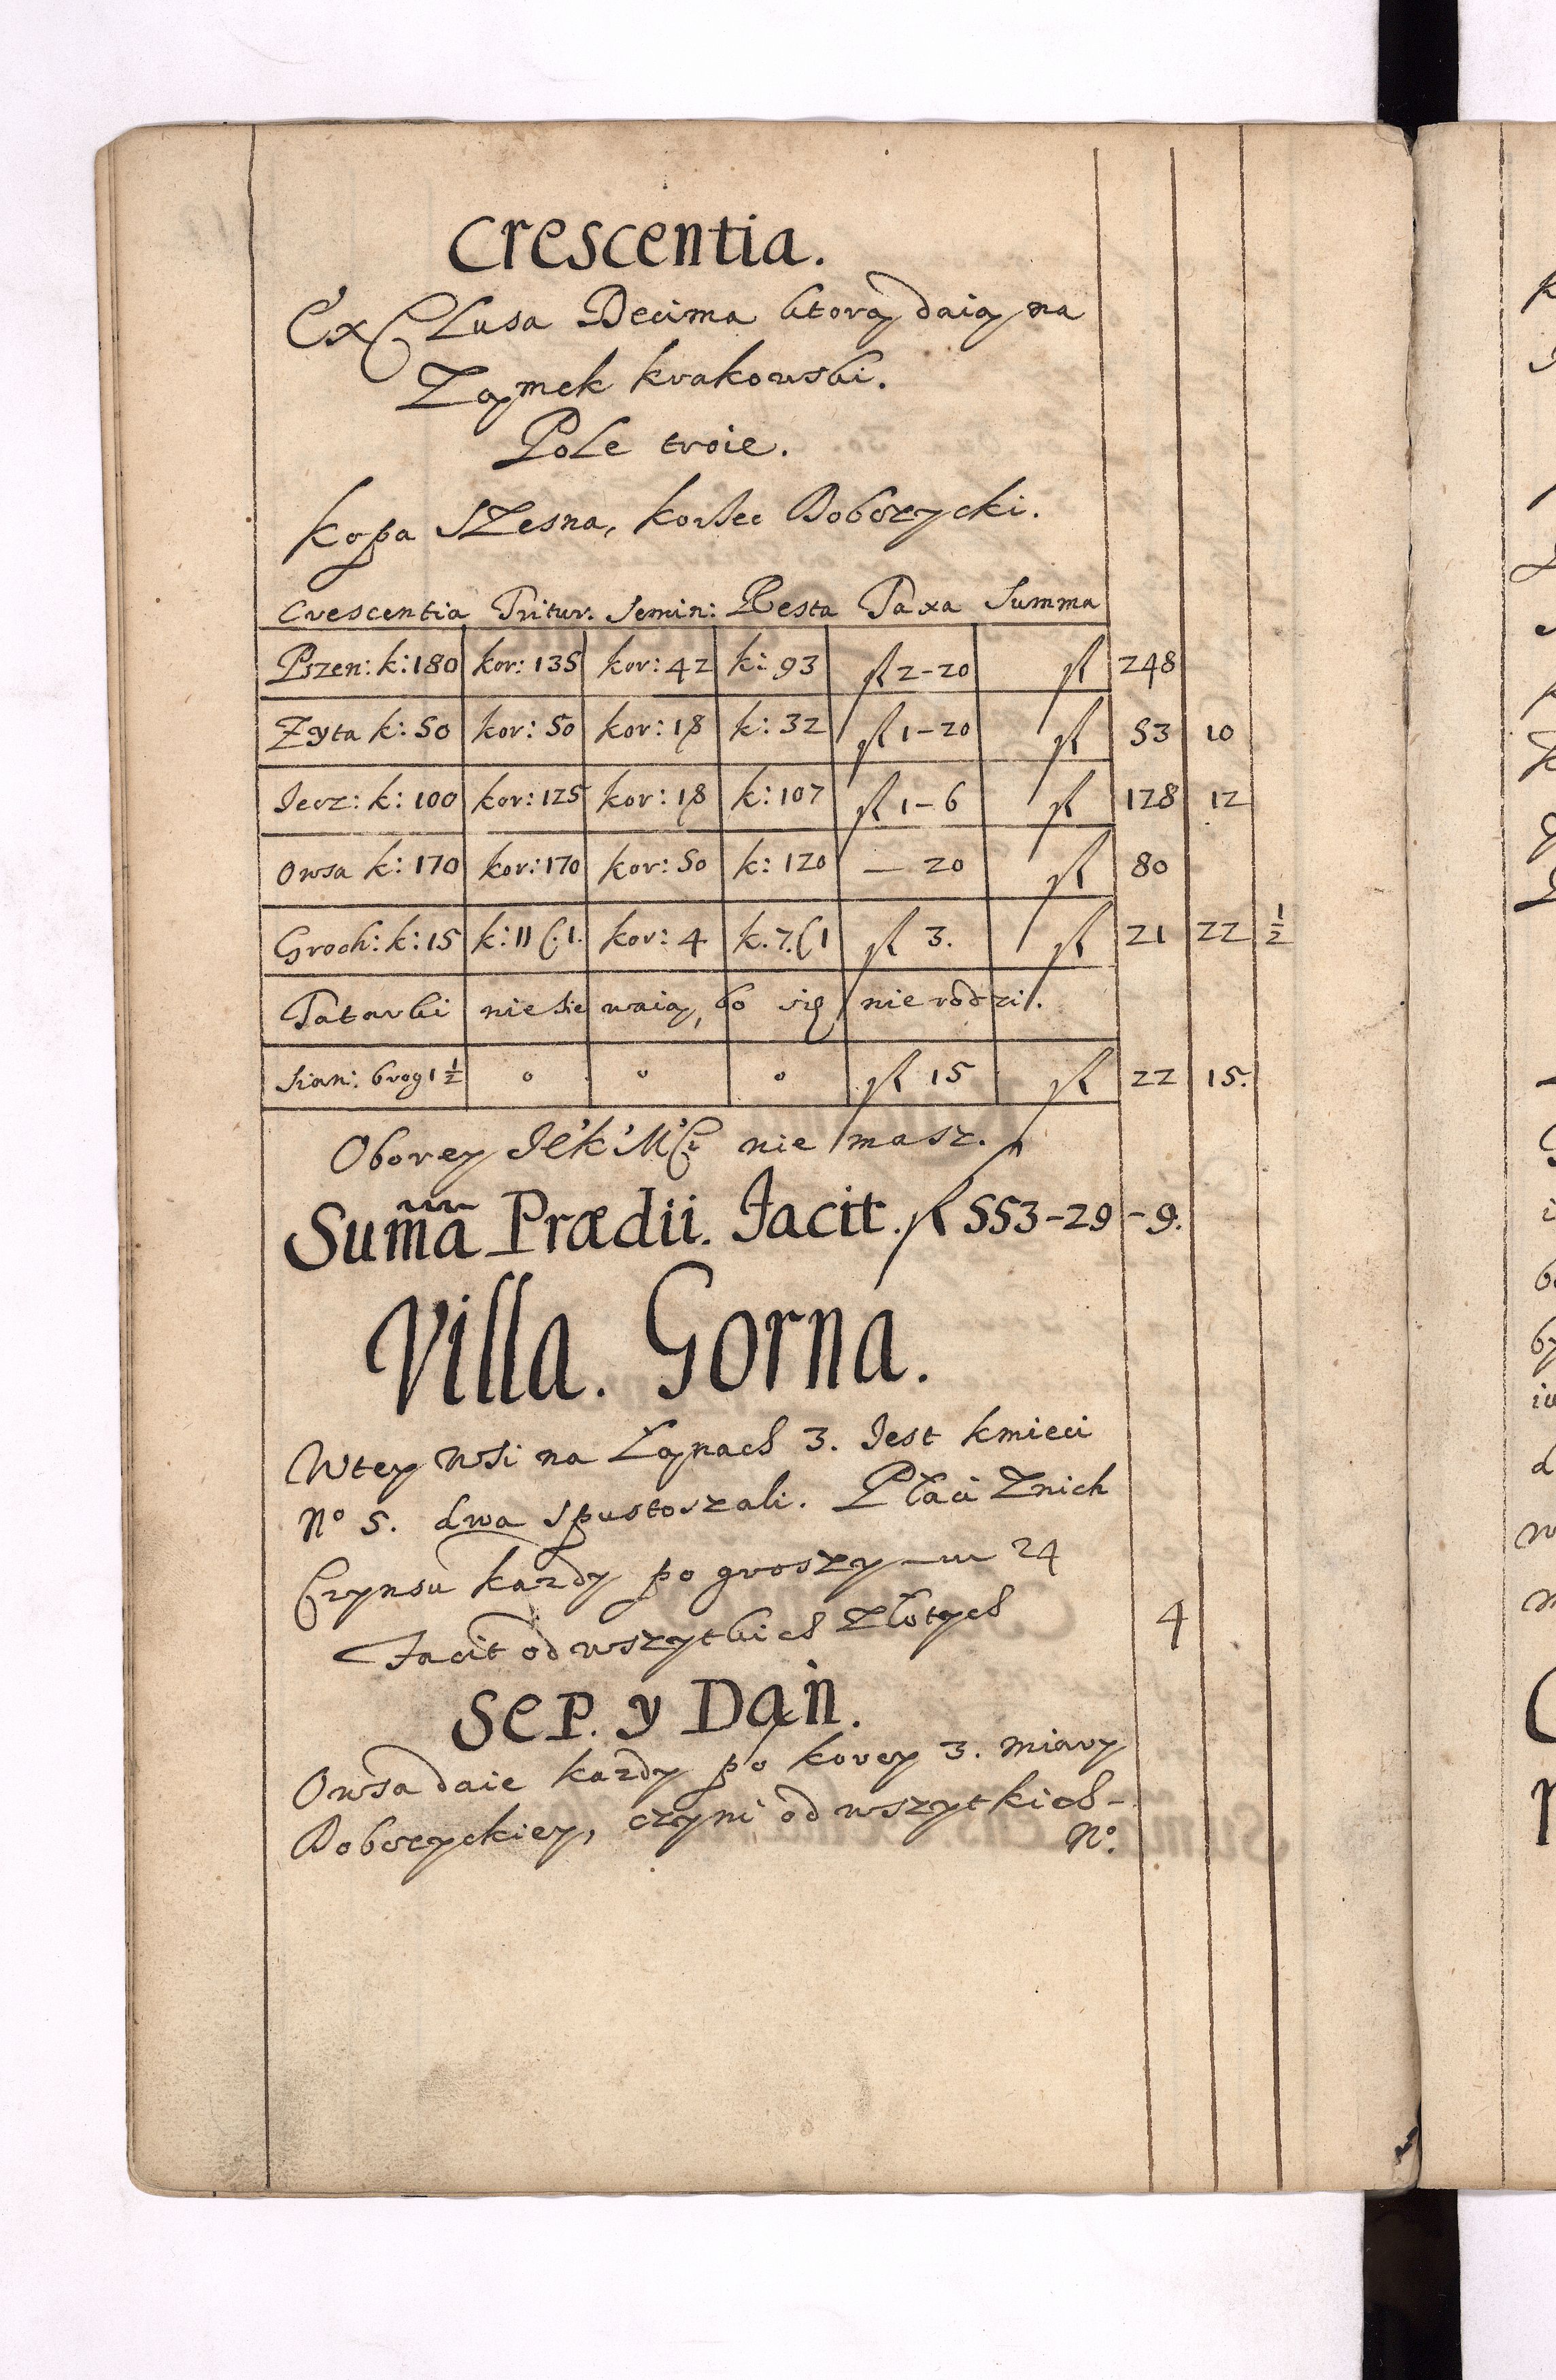 Crescentia.
Exclusa Decima ktorą daią na
Zamek krakowski.
Pole troie.
kopa Szesna, korzec Dobczycki.
Crescentia Tritur. Semin: Resta Taxa Summa
Pszen: k: 180 kor: 135 kor: 42 k: 93 fl 2-20 fl 248
Zyta k: 50 kor: 50 kor: 18 k: 32 fl 1-20 fl 53 10
Iecz: k: 100 kor: 125 kor: 18 k: 107 fl 1-6 fl 128 12
Owsa k: 170 kor: 170 kor: 50 k: 120 — 20 fl 80
Groch: k: 15 k: 11 C. 1. kor: 4 k. 7. C 1 fl 3. fl 21 22 1/2
Tatarki nie siewaią, bo się nie rodzi.
Sian: brog 1 1/2 o o o fl 15 fl 22 15.
Oborey nie masz.
Suma Prædii. Facit. fl 553-29-9.
Villa. Gorna.
Wtey wsi na Łanach 3. Iest kmieci
No 5. dwa spustoszali. Płaci Znich
Czynsu każdy po groszy 24
Facit od wszytkich Złotych 4
SEP. y Dań.
Owsa daie każdy po korcy 3. miary
Dobczyckiey, czyni od wszytkich-
No.